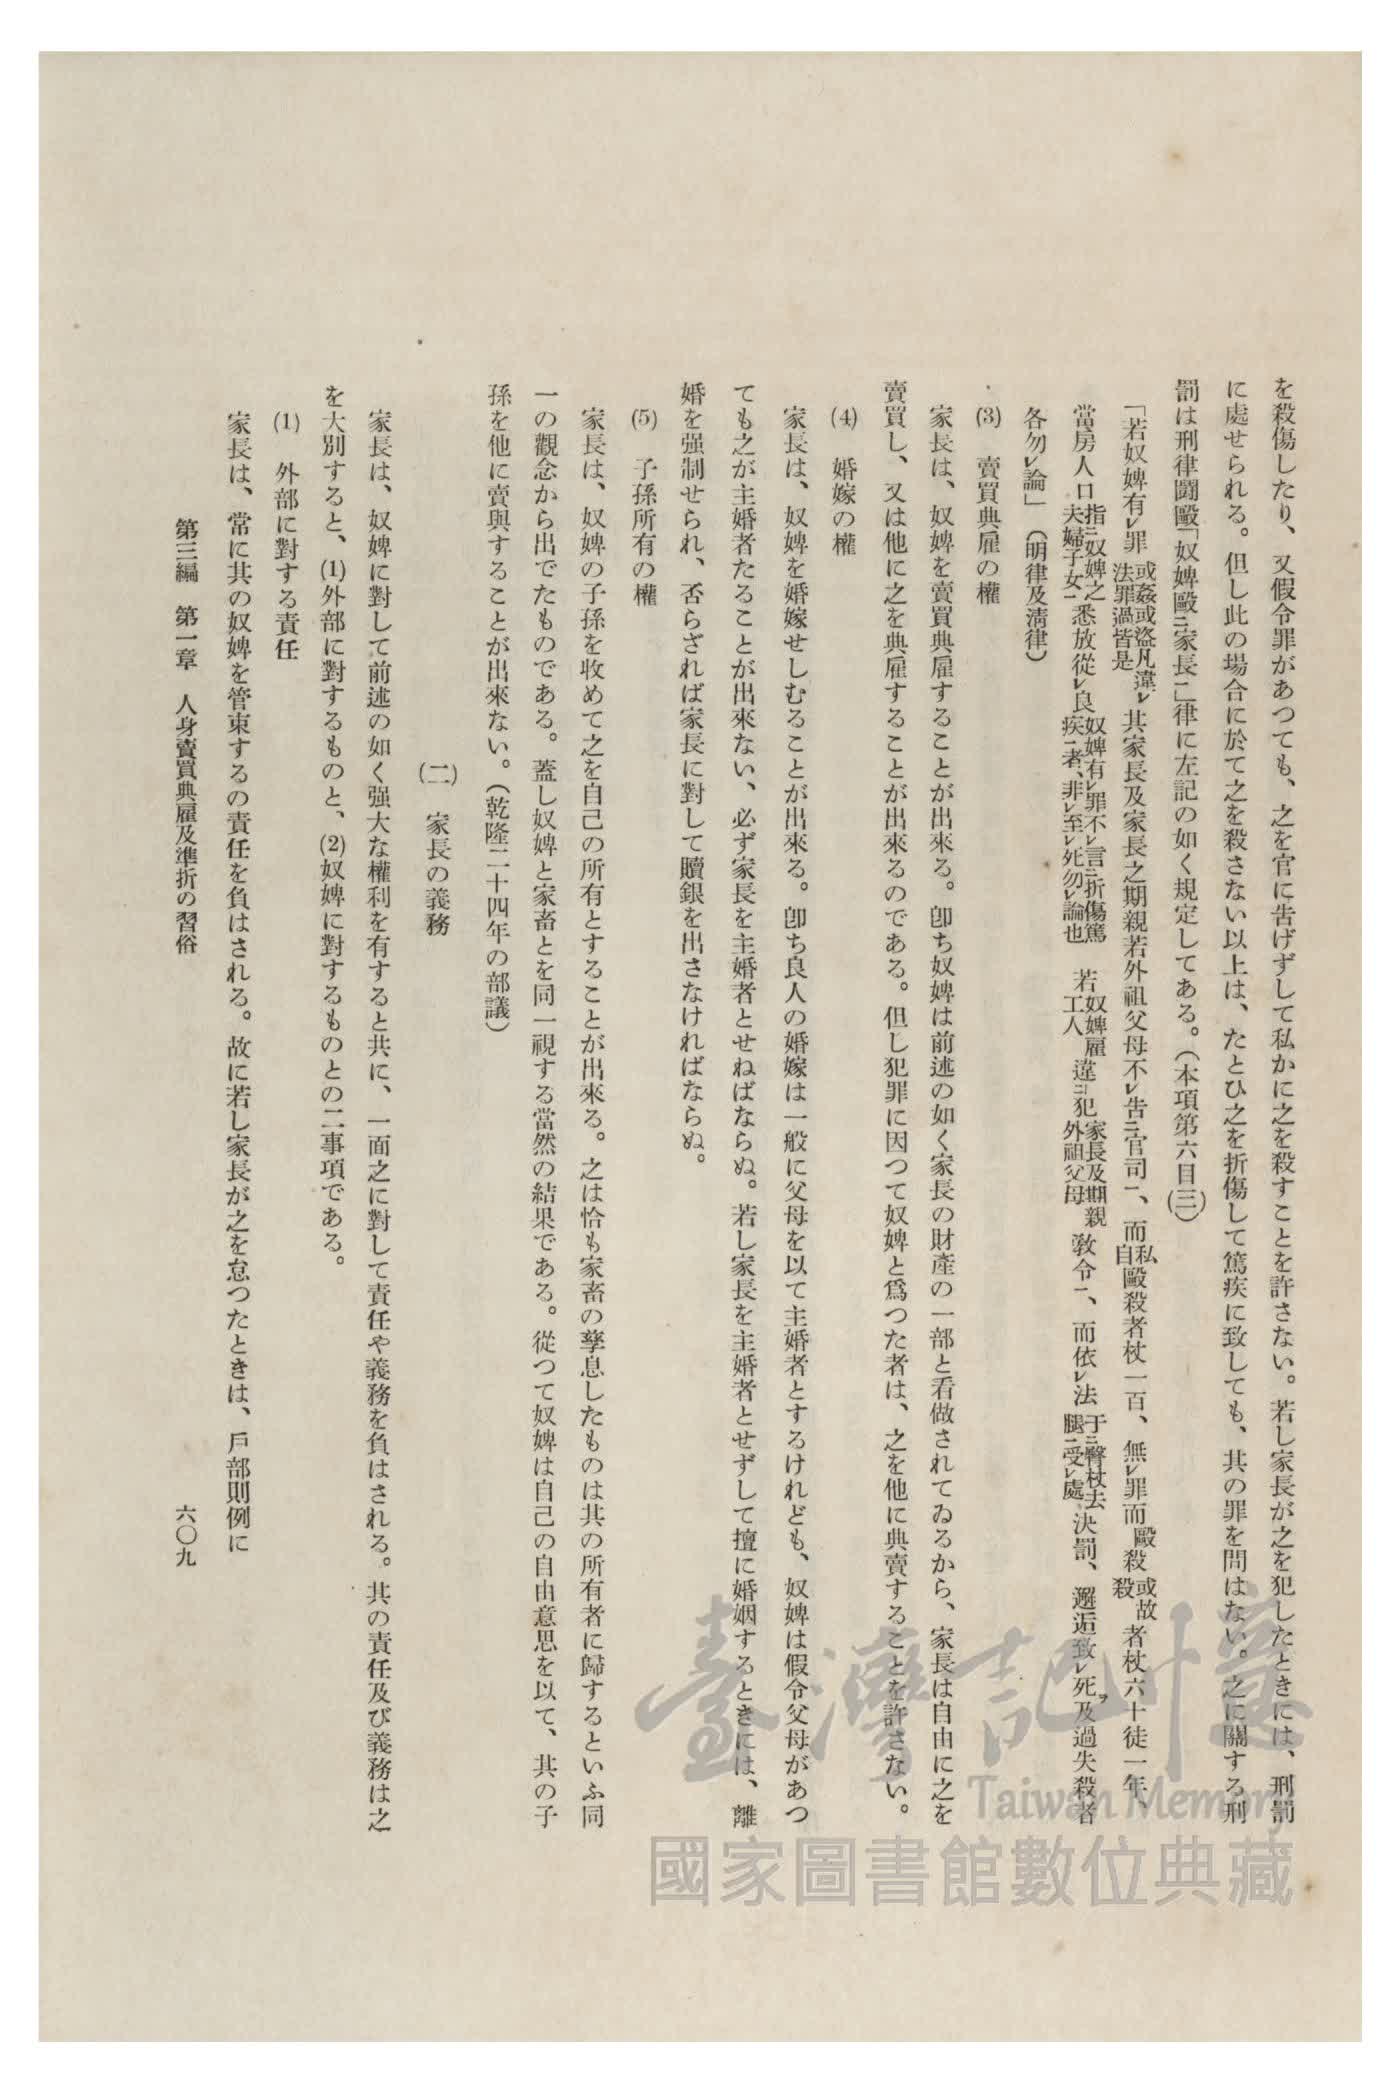 を殺傷したり、又假令罪があつても、之を官に告げずして私かに之を殺すことを許さない。若し家長が之を犯したときには、刑罰
に處せられる。但し此の場合に於て之を殺さない以上は、たとひ之を折傷して篤疾に致しても、其の罪を問はない。之に關する刑
罰は刑律鬪毆「奴婢毆ニ家長一」律に左記の如く規定してある。（本項第六目(三)）
「若奴婢有レ罪或姦或盜凡違レ法罪過皆是其家長及家長之期親若外祖父母不レ告ニ官司一、而私自毆殺者杖一百、無レ罪而毆殺或故殺者杖六十徒一年、
當房人口指ニ奴婢之夫婦子女一悉放從レ良奴婢有レ罪不レ言ニ折傷篤疾一者、非レ至レ死勿レ論也　若奴婢雇工人違ニ犯家長及期親外祖父母敎令一、而依レ法于ニ臀杖去腿一受レ處決罰、邂逅致レ死及過失殺者
各勿レ論」（明律及淸律）
(3)　賣買典雇の權
家長は、奴婢を賣買典雇することが出來る。卽ち奴婢は前述の如く家長の財產の一部と看做されてゐるから、家長は自由に之を
賣買し、又は他に之を典雇することが出來るのである。但し犯罪に因つて奴婢と爲つた者は、之を他に典賣することを許さない。
(4)　婚嫁の權
家長は、奴婢を婚嫁せしむることが出來る。卽ち良人の婚嫁は一般に父母を以て主婚者とするけれども、奴婢は假令父母があつ
ても之が主婚者たることが出來ない、必ず家長を主婚者とせねばならぬ。若し家長を主婚者とせずして擅に婚姻するときには、離
婚を强制せられ、否らざれば家長に對して贖銀を出さなければならぬ。
(5)　子孫所有の權
家長は、奴婢の子孫を收めて之を自己の所有とすることが出來る。之は恰も家畜の孳息したものは其の所有者に歸するといふ同
一の觀念から出でたものである。蓋し奴婢と家畜とを同一視する當然の結果である。從つて奴婢は自己の自由意思を以て、其の子
孫を他に賣與することが出來ない。（乾隆二十四年の部議）
(二)　家長の義務
家長は、奴婢に對して前述の如く强大な權利を有すると共に、一面之に對して責任や義務を負はされる。其の責任及び義務は之
を大別すると、(1)外部に對するものと、(2)奴婢に對するものとの二事項である。
(1)　外部に對する責任
家長は、常に其の奴婢を管束するの責任を負はされる。故に若し家長が之を怠つたときは、戶部則例に
第三編　第一章　人身賣買典雇及準折の習俗
六〇九
臺灣記憶
Taiwan Memory
國家圖書館數位典藏